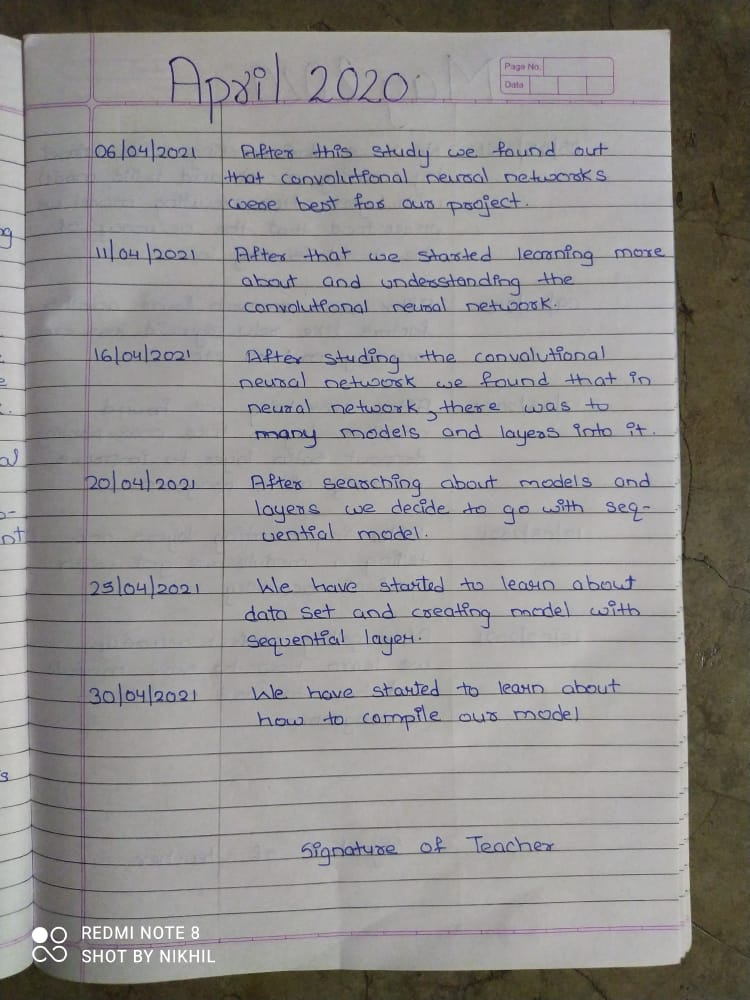 April 2020
Page No.
Date
06/04/2021 After this study we found out
that convolutional neural networks
were best for our project.
11/04/2021 After that we started learning more
about and understanding the
convolutional neural network.
16/04/2021 After studing the convolutional
neural network we found that in
neural network, there was to
many models and layers into it.
20/04/2021 After searching about models and
layers we decide to go with seq-
uential model.
25/04/2021 We have started to learn about
data set and creating model with
sequential layer.
30/04/2021 We have started to learn about
how to compile our model
Signature of Teacher
REDMI NOTE 8
SHOT BY NIKHIL